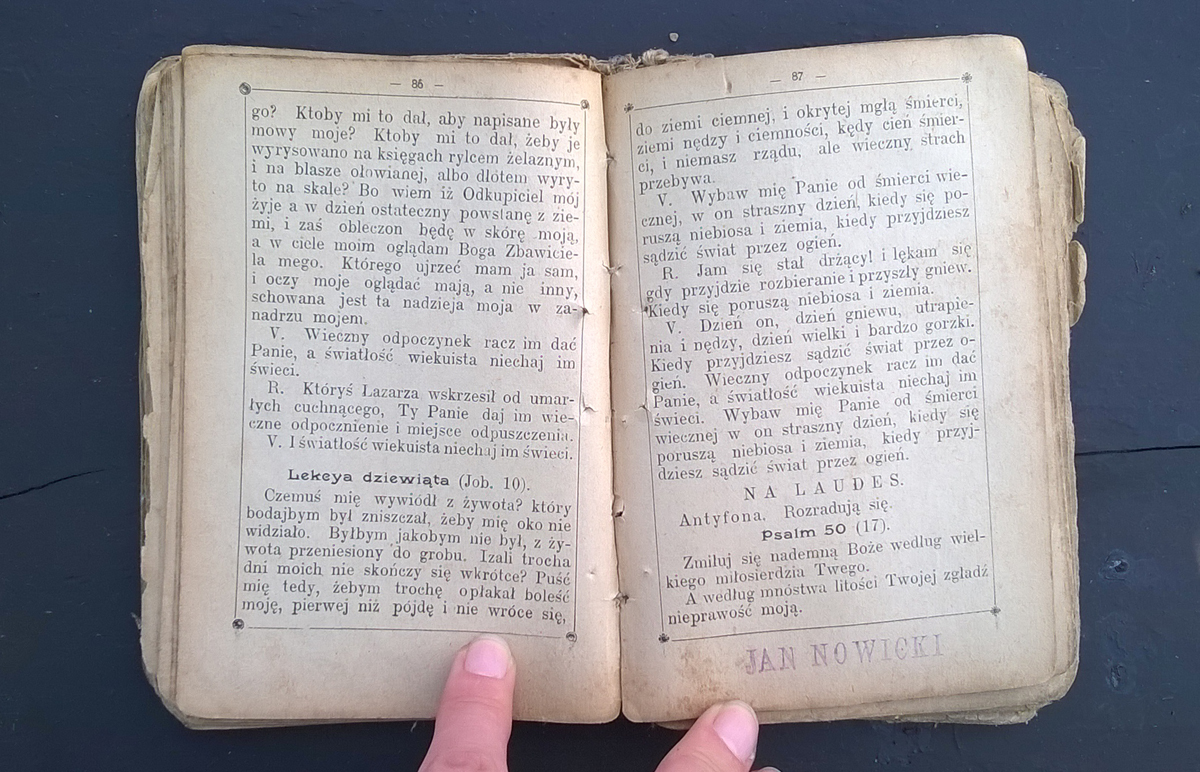 — 86 —
go? Ktoby mi to dał, aby napisane były
mowy moje? Ktoby mi to dał, żeby je
wyrysowano na księgach rylcem żelaznym,
i na blasze ołowianej, albo dłótem wyry-
to na skale? Bo wiem iż Odkupiciel mój
żyje a w dzień ostateczny powstanę z zie-
mi, i zaś obleczon będę w skórę moją,
a w ciele moim oglądam Boga Zbawicie-
la mego. Którego ujrzeć mam ja sam,
i oczy moje oglądać mają, a nie inny,
schowana jest ta nadzieja moja w za-
nadrzu mojem.
V. Wieczny odpoczynek racz im dać
Panie, a światłość wiekuista niechaj im
świeci.
R. Któryś Łazarza wskrzesił od umar-
łych cuchnącego, Ty Panie daj im wie-
czne odpocznienie i miejsce odpuszczenia.
V. I światłość wiekuista niechaj im świeci.
Lekcya dziewiąta (Job. 10).
Czemuś mię wywiódł z żywota? który
bodajbym był zniszczał, żeby mię oko nie
widziało. Byłbym jakobym nie był, z ży-
wota przeniesiony do grobu. Izali trocha
dni moich nie skończy się wkrótce? Puść
mię tedy, żebym trochę opłakał boleść
moję, pierwej niż pójdę i nie wróce się,
— 87 —
do ziemi ciemnej, i okrytej mgłą śmierci,
ziemi nędzy i ciemności, kędy cień śmier-
ci, i niemasz rządu, ale wieczny strach
przebywa.
V. Wybaw mię Panie od śmierci wie-
cznej, w on straszny dzień, kiedy się po-
ruszą niebiosa i ziemia, kiedy przyjdziesz
sądzić świat przez ogień.
R. Jam się stał drżący! i lękam się
gdy przyjdzie rozbieranie i przyszły gniew.
Kiedy się poruszą niebiosa i ziemia.
V. Dzień on, dzień gniewu, utrapie-
nia i nędzy, dzień wielki i bardzo gorzki.
Kiedy przyjdziesz sądzić świat przez o-
gień. Wieczny odpoczynek racz im dać
Panie, a światłość wiekuista niechaj im
świeci. Wybaw mię Panie od śmierci
wiecznej w on straszny dzień, kiedy się
poruszą niebiosa i ziemia, kiedy przyj-
dziesz sądzić świat przez ogień.
NA LAUDES.
Antyfona. Rozradują się.
Psalm 50 (17).
Zmiłuj się nademną Boże według wiel-
kiego miłosierdzia Twego.
A według mnóstwa litości Twojej zgładź
nieprawość moją.
JAN NOWICKI